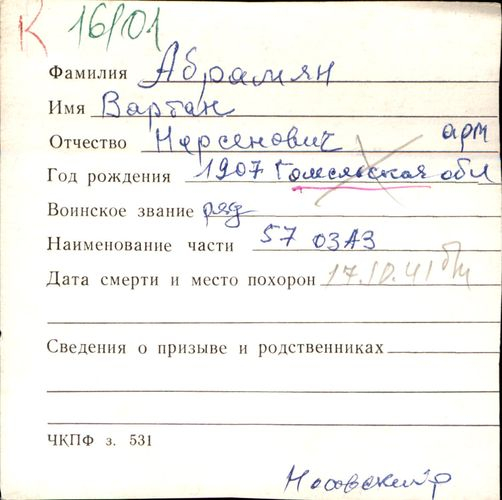 К 16/01
Фамилия Абрамян
Имя Вартан
Отчество Нерсенович арм
Год рождения 1907 Гомельская обл
Воинское звание ряд
Наименование части 57 ОЗАЗ
Дата смерти и место похорон 17.10.41
Сведения о призыве и родственниках
ЧКПФ з. 531